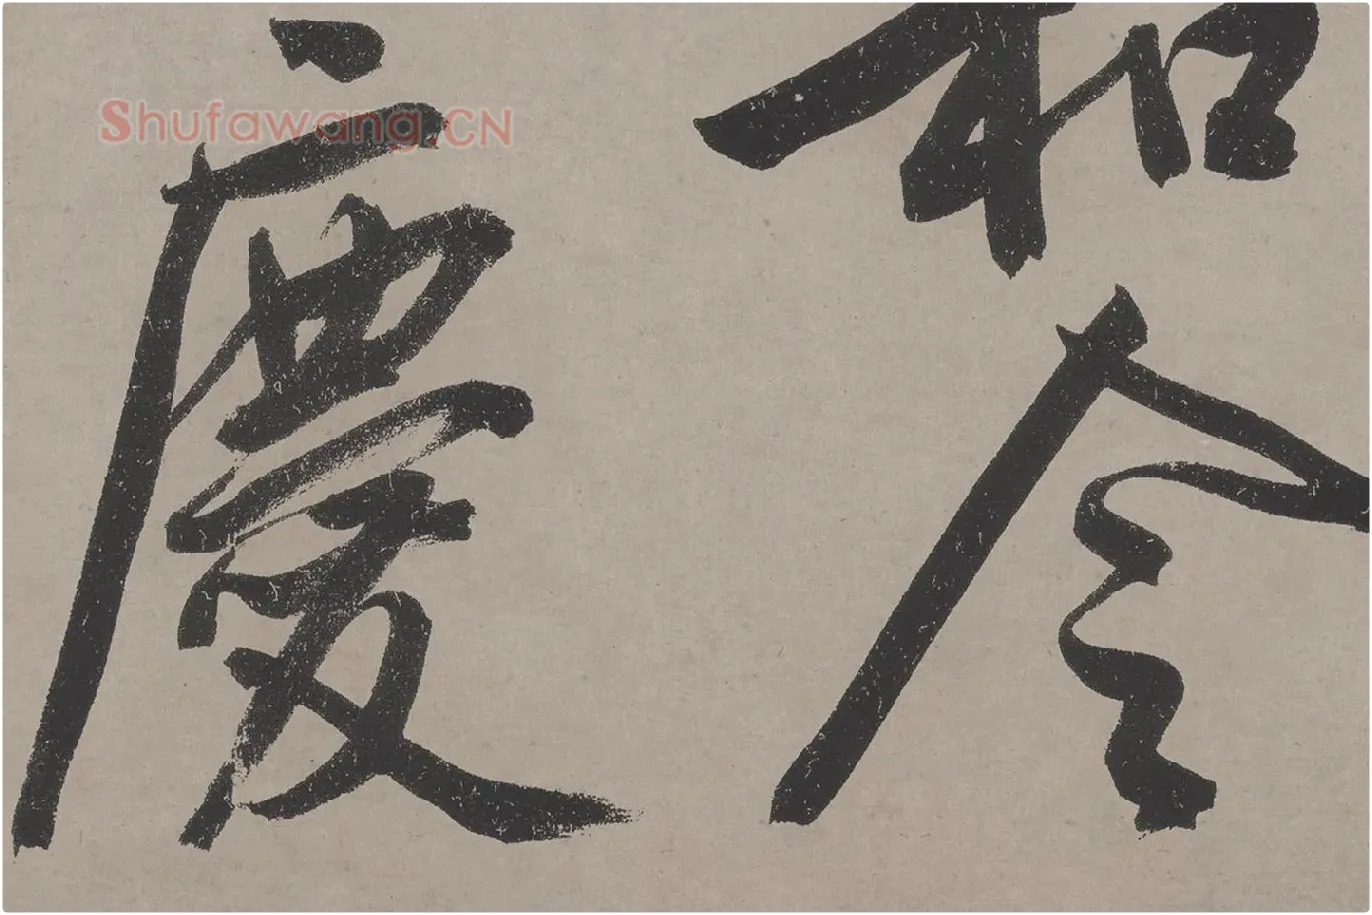 和令
慶
Shufawang.CN